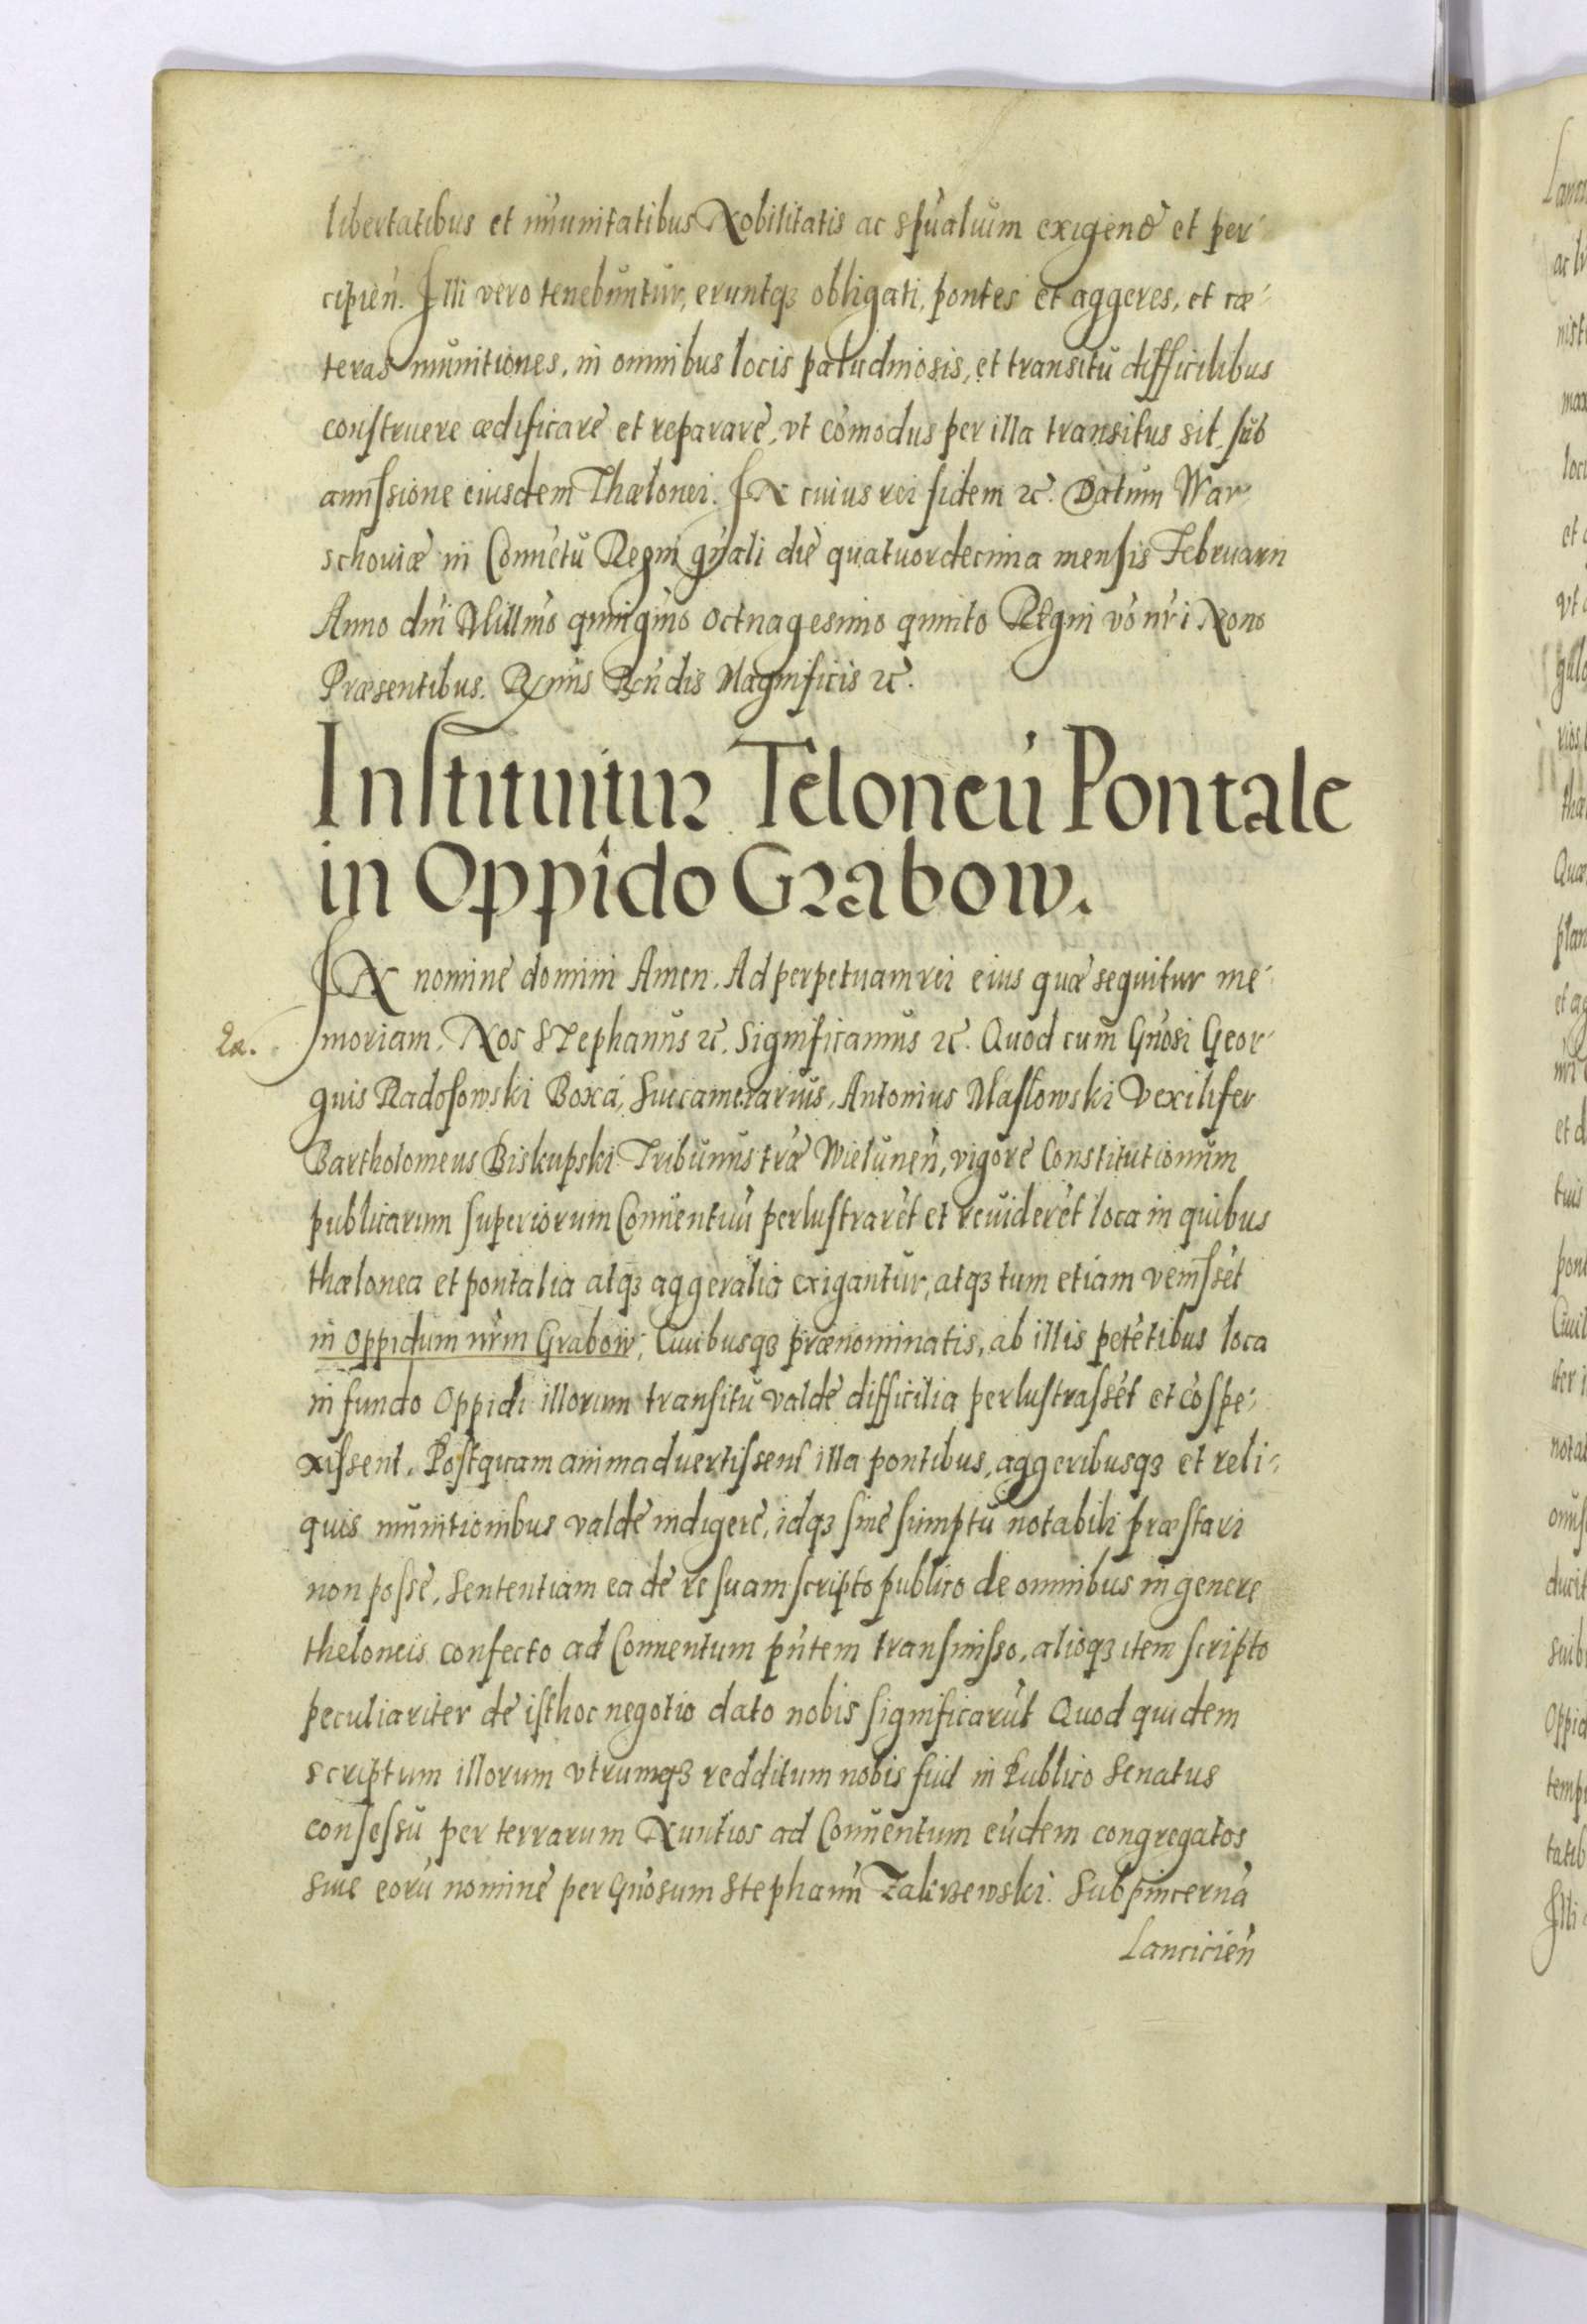 libertatibus et im̃unitatibus Nobilitatis ac sp̃ualium exigend̃ et per-
cipień. Illi vero tenebuntur, eruntqꝫ obligati, pontes et aggeres, et cæ-
teras munitiones, in omnibus locis paludinosis, et transitu difficilibus
construere ædificare et reparare, vt cõmodus per illa transitus sit, sub
amissione eiusdem Thælonei. IN cuius rei fidem ꝛc. Datum War-
schouiæ in Conuẽtu Regni gñali die quatuordecima mensis Februarii
Anno dńi Millm̃o quingm̃o octuagesimo quinto Regni vo nr̃i Nono
Præsentibus. Rm̃is Rn̄dis Magnificis ꝛc.
Instituitur Teloneũ Pontale
in Oppido Grabow.
IN nomine domini Amen. Ad perpetuam rei eius quæ sequitur me-
moriam. Nos STephanus ꝛc. Significamus ꝛc. Quod cum Gñosi Geor-
gius Radosowski Boxa, Succamerarius, Antonius Maslowski Vexilifer
Bartholomeus Biskupski Tribunus tr̃æ Wielunen̄, vigore Constitutionum
publicarum superiorum Conuentuũ perlustrarẽt et reuiderẽt loca in quibus
thælonea et pontalia atqꝫ aggeralia exigantur, atqꝫ tum etiam venissẽt
in Oppidum nr̃m Grabow, Ciuibusqꝫ prænominatis, ab illis petẽtibus loca
in fundo Oppidi illorum transitu valde difficilia perlustrassẽt et cõspe-
xissent. Postquam animaduertissent illa pontibus, aggeribusqꝫ et reli-
quis munitionibus valde indigere, idqꝫ sine sumptu notabili præstari
non posse, Sententiam ea de re suam scripto publico de omnibus in genere
theloneis confecto ad Conuentum pñtem transmisso, alioqꝫ item scripto
peculiariter de isthoc negotio dato nobis significarũt Quod quidem
scriptum illorum vtrumqꝫ redditum nobis fuit in Publico Senatus
consessu per terrarum Nuntios ad Conuentum eũdem congregatos
siue eorũ nomine per Gñosum Stephanũ Zakrzewski Subpincernã
Lancicień